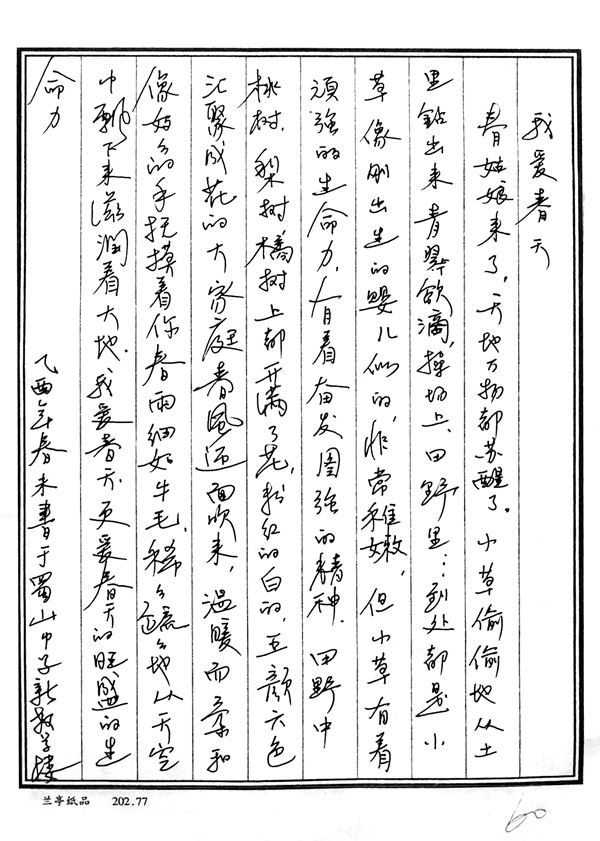 我爱春天
春姑娘来了，天地万物都苏醒了。小草偷偷地从土
里钻出来青翠欲滴，操场上、田野里…到处都是小
草像刚出生的婴儿似的，非常稚嫩，但小草有着
顽强的生命力，有着奋发图强的精神。田野中
桃树、梨树橘树上都开满了花，粉红的白的，五颜六色
汇聚成花的大家庭春风迎面吹来，温暖而柔和
像妈妈的手抚摸着你春雨细如牛毛，稀稀疏疏地从天空
中飘下来滋润着大地。我爱春天，更爱春天的旺盛的生
命力
乙酉年春末书于蜀山中学新教学楼
兰亭纸品 202.77
60